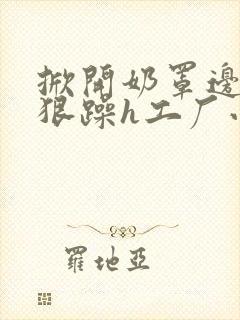 掀開奶罩邊
狠躁h工厂
羅地亞